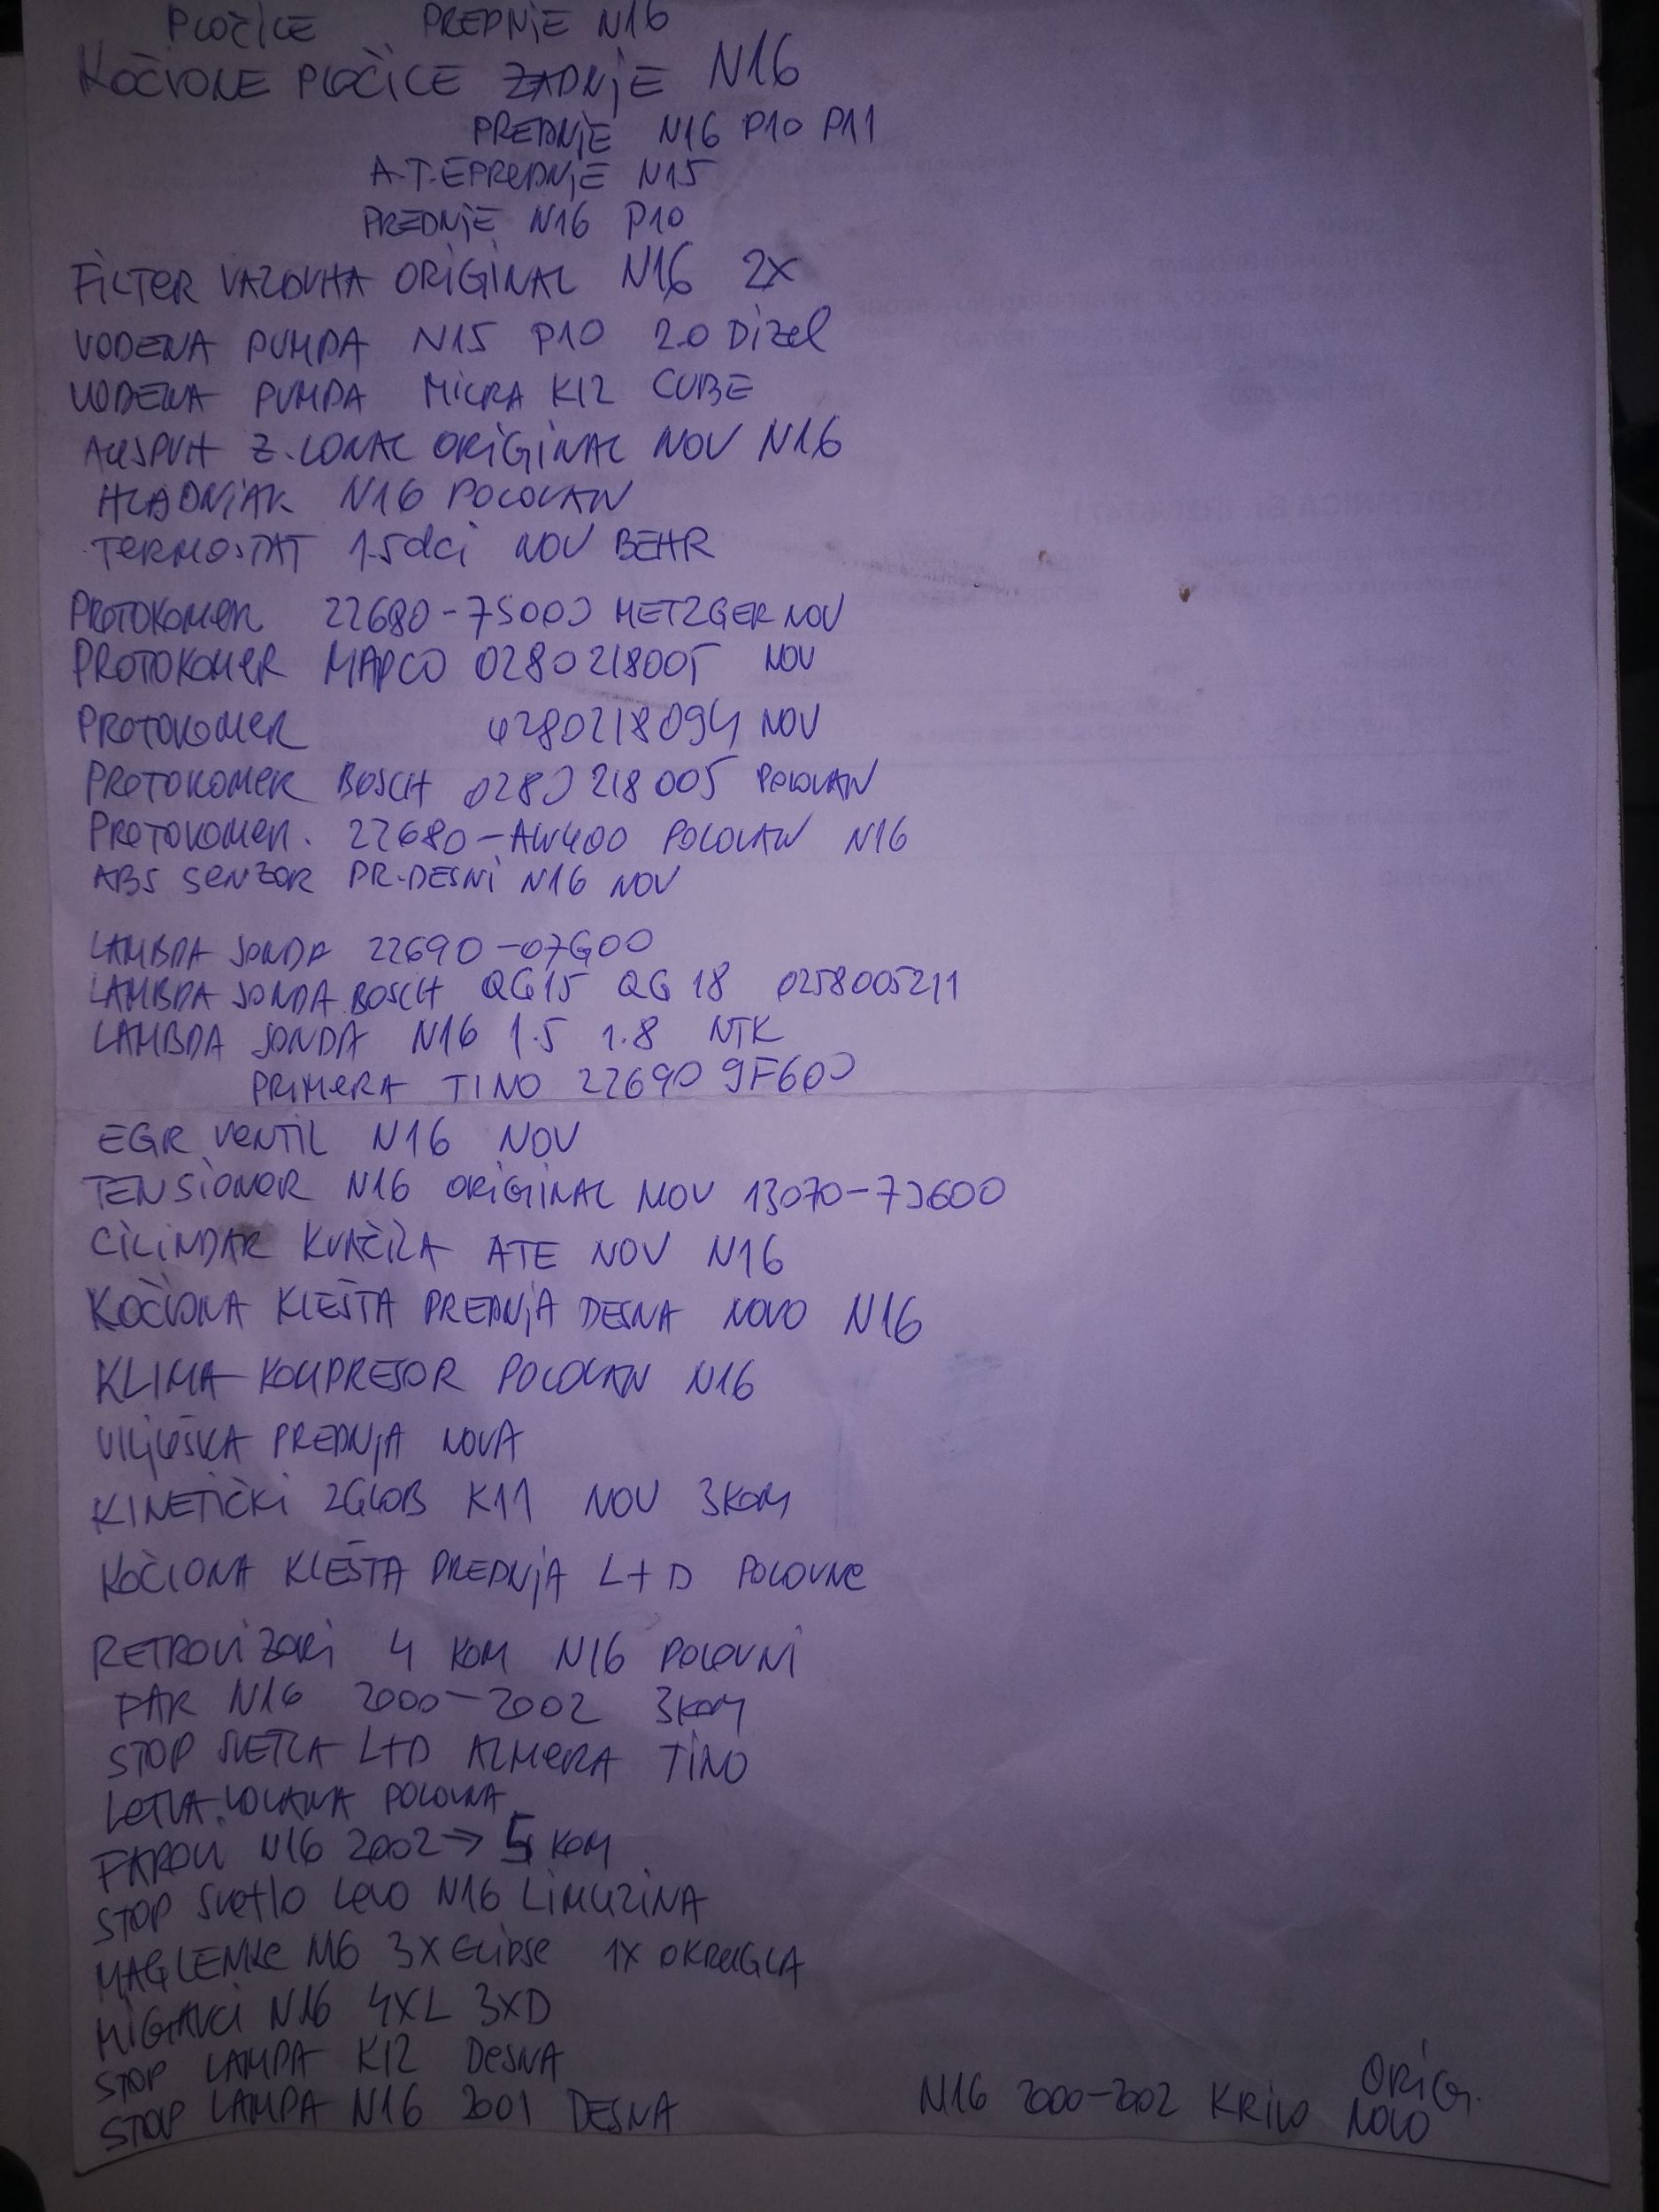 PLOČICE PREDNJE N16
KOČIONE PLOČICE ZADNJE N16
PREDNJE N16 P10 P11
A.T.E PREDNJE N15
PREDNJE N16 P10
FILTER VAZDUHA ORIGINAL N16 2X
VODENA PUMPA N15 P10 2.0 Dizel
VODENA PUMPA MICRA K12 CUBE
AUSPUH Z.LONAC ORIGINAL NOV N16
HLADNJAK N16 POLOVAN
TERMOSTAT 1.5dci NOV BEHR
PROTOKOMER 22680-75000 METZGER NOV
PROTOKOMER MAPCO 0280218005 NOV
PROTOKOMER 0280218094 NOV
PROTOKOMER BOSCH 0280 218 005 POLOVAN
PROTOKOMER. 22680-AW400 POLOVAN N16
ABS SENZOR PR.DESNI N16 NOV
LAMBDA SONDA 22690-07G00
LAMBDA SONDA BOSCH QG15 QG 18 0258005211
LAMBDA SONDA N16 1.5 1.8 NTK
PRIMERA TINO 22690 9F600
EGR VENTIL N16 NOV
TENSIONER N16 ORIGINAL NOV 13070-7J600
CILINDAR KVAČILA ATE NOV N16
KOČIONA KLEŠTA PREDNJA DESNA NOVO N16
KLIMA KOMPRESOR POLOVAN N16
VILJUŠKA PREDNJA NOVA
KINETIČKI ZGLOB K11 NOV 3KOM
KOČIONA KLEŠTA PREDNJA L+D POLOVNE
RETROVIZORI 4 KOM N16 POLOVNI
FAR N16 2000-2002 3KOM
STOP SVETLA L+D ALMERA TINO
LETVA VOLANA POLOVNA
FAROVI N16 2002→ 5 KOM
STOP SVETLO LEVO N16 LIMUZINA
MAGLENKE N16 3X ELIPSE 1X OKRUGLA
MIGAVCI N16 4XL 3XD
STOP LAMPA K12 DESNA
STOP LAMPA N16 2001 DESNA
N16 2000-2002 KRILO ORIG. NOVO